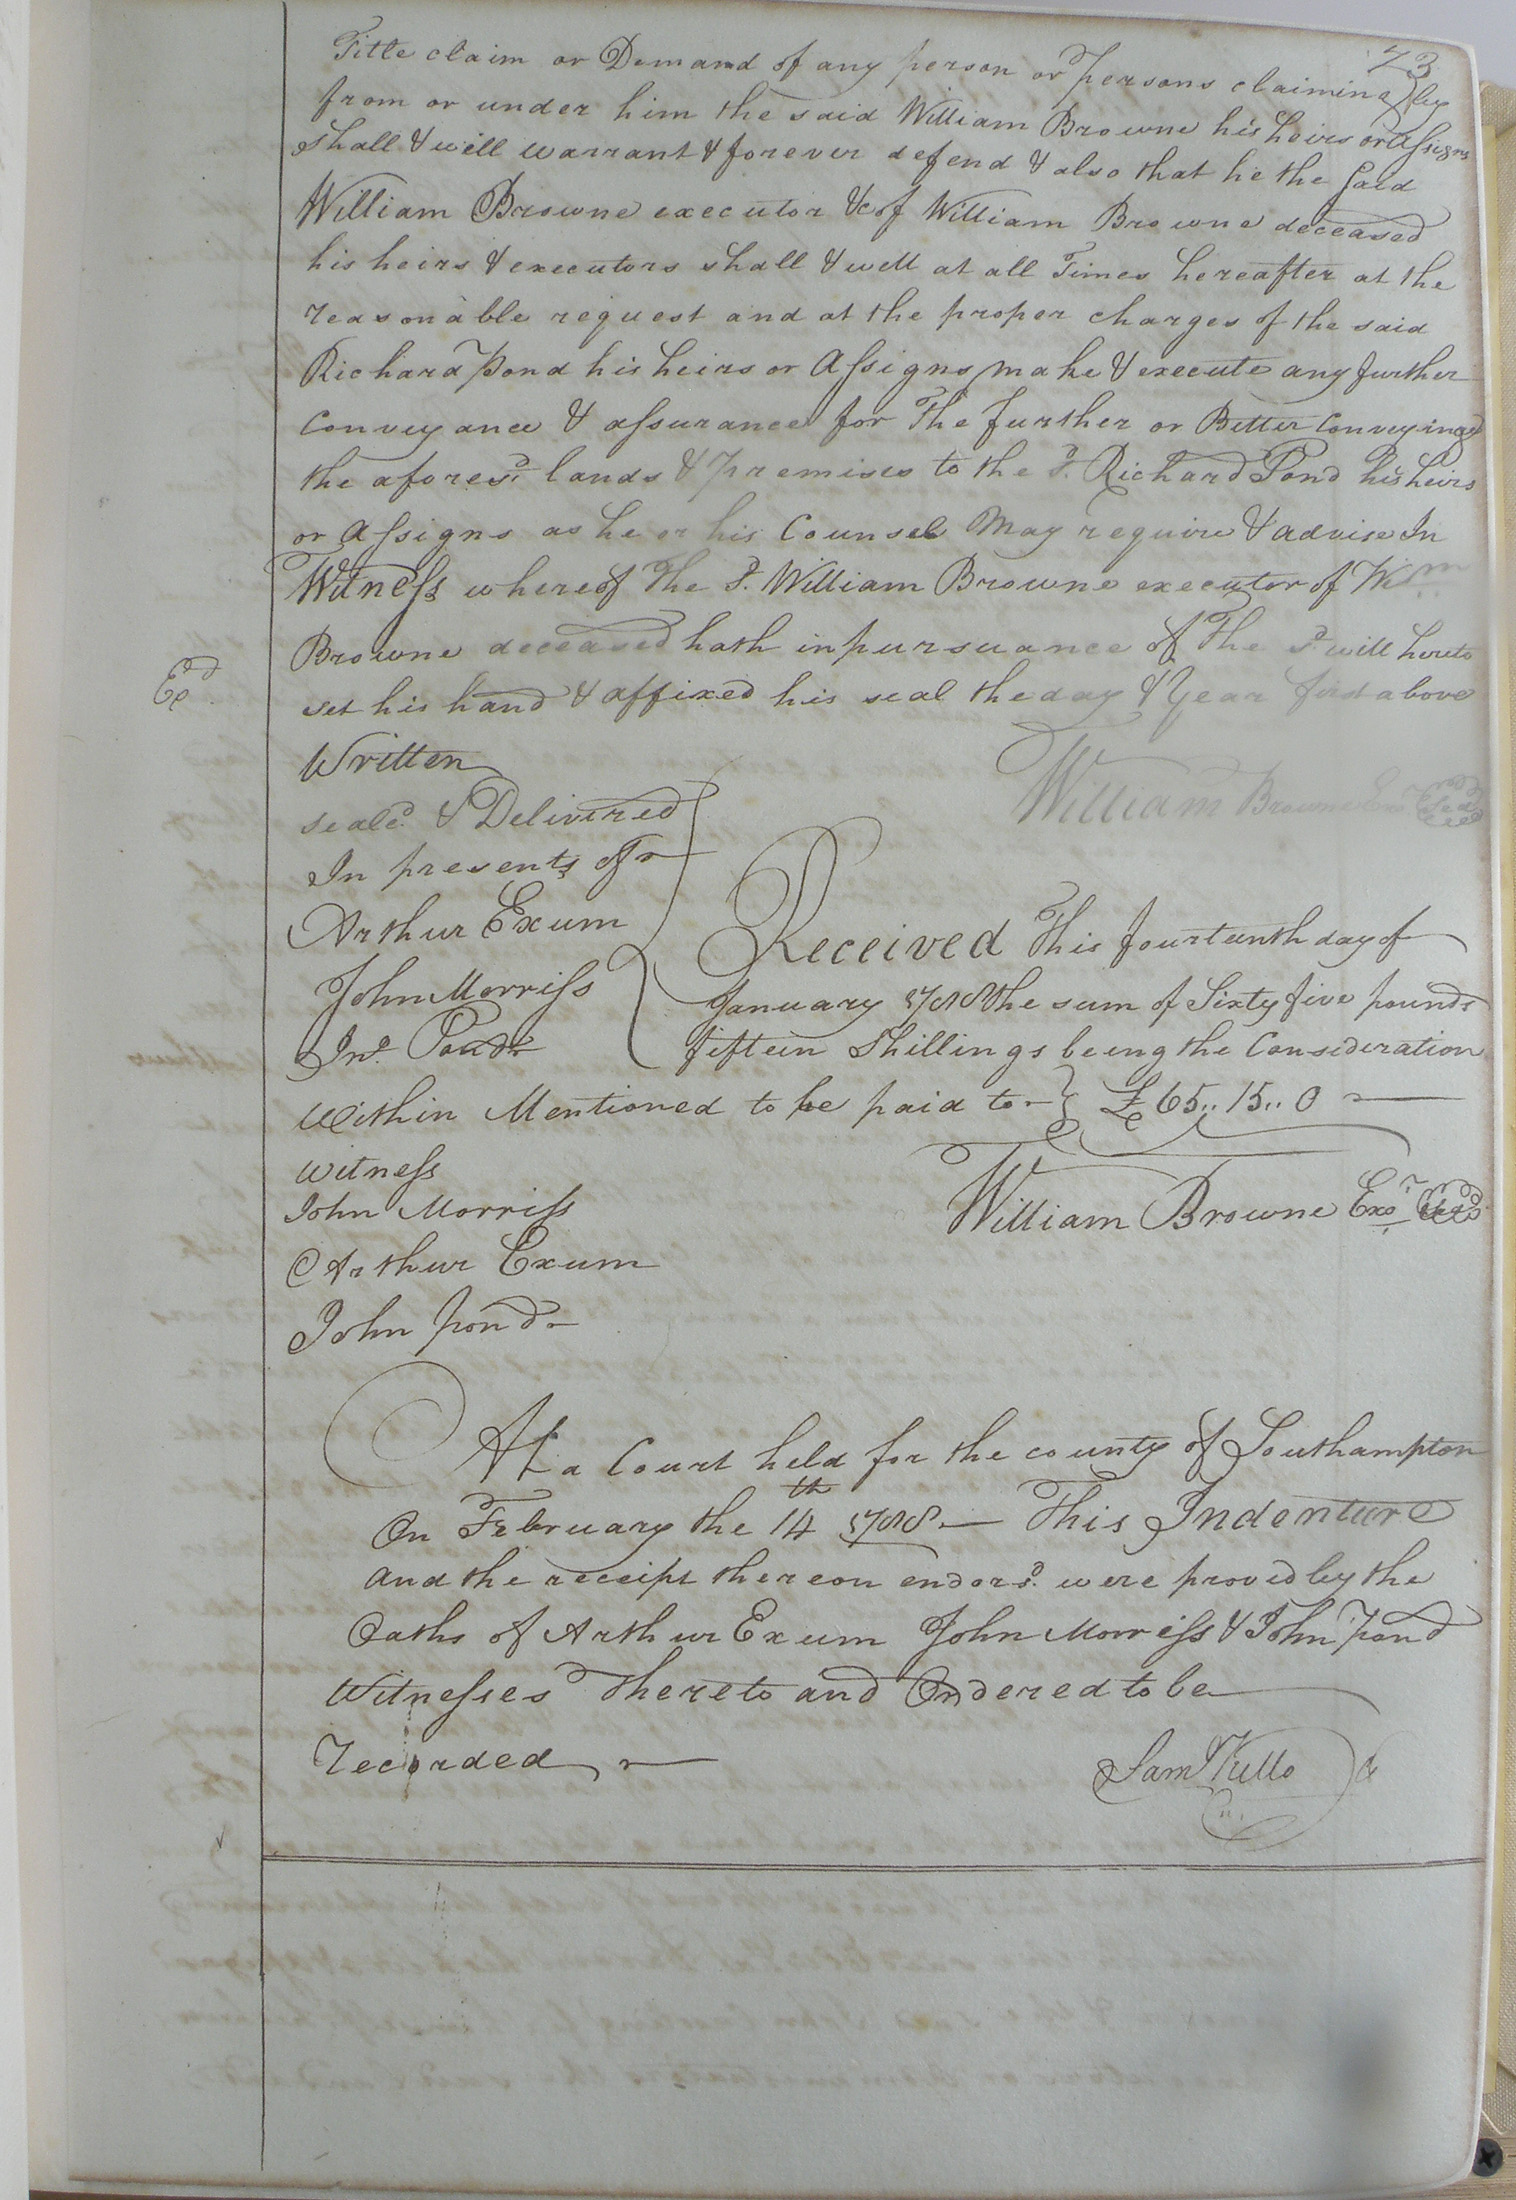 73
Title claim or Demand of any person or persons claiming by
from or under him the said William Browne his heirs or Assigns
shall & will warrant & forever defend & also that he the said
William Browne executor &c of William Browne deceased
his heirs & executors shall & well at all Times hereafter at the
reasonable request and at the proper charges of the said
Richard Pond his heirs or Assigns make & execute any further
Conveyance & assurance for The further or Better Conveying
the afores.d lands & Premises to the s.d Richard Pond his heirs
or Assigns as he or his Counsel May require & advise In
Witness whereof The s.d William Browne executor of Wm
Browne deceased hath in pursuance of The s.d will hereto
Ex.d set his hand & affixed his seal the day & Year first above
Written
William Bro
seal.d & Delivered
In presents of
Arthur Exum
John Morriss
Jn.o Pond
Received This fourteenth day of
January 1788 the sum of Sixty five pounds
fifteen Shillings being the Consideration
Within Mentioned to be paid to £65..15..0
Witness
John Morriss
William Browne Exo.r Seal
Arthur Exum
John Pond
At a Court held for the county of Southampton
On February the 14th 1788 This Indenture
and the receipt thereon endors.d were proved by the
Oaths of Arthur Exum John Morriss & John Pond
Witnesses Thereto and Ordered to be
recorded
Sam Kello